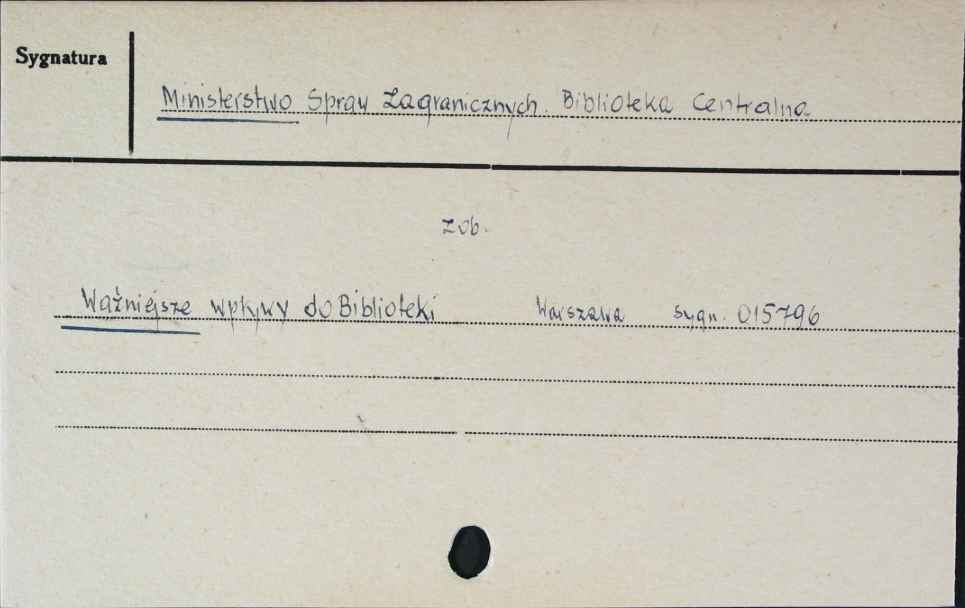 Sygnatura
Ministerstwo Spraw Zagranicznych. Biblioteka Centralna
zob.
Ważniejsze wpływy do Biblioteki Warszawa sygn. 015796